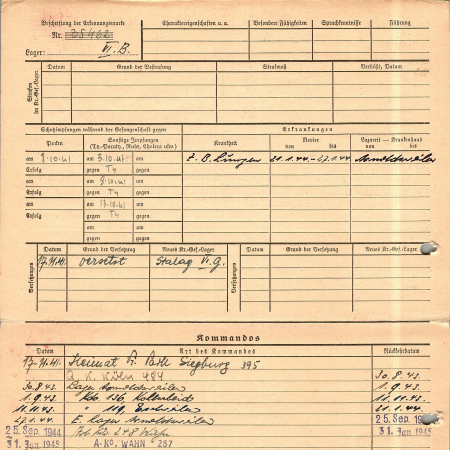 Beschriftung der Erkennungsmarke
Nr.
Lager: VI. B.
Charaktereigenschaften u. a.
Besondere Fähigkeiten
Sprachkenntnisse
Führung
Strafen im Kr.-Gef.-Lager
Datum
Grund der Bestrafung
Strafmaß
Verbüßt, Datum
Schutzimpfungen während der Gefangenschaft gegen
Erkrankungen
Pocken
Sonstige Impfungen
(Ty.-Paraty., Ruhr, Cholera usw.)
Krankheit
Revier
von — bis
Lazarett — Krankenhaus
von — bis
am 8.10.41 am 3.10.41 am
Erfolg gegen Ty gegen
am am 8.10.41 am
Erfolg gegen Ty gegen
am am 13.10.41 am
Erfolg gegen Ty gegen
am am
gegen gegen
21.1.44.–27.1.44.
Versetzungen
Datum
Grund der Versetzung
Neues Kr.-Gef.-Lager
Versetzungen
Datum
Grund der Versetzung
Neues Kr.-Gef.-Lager
17.11.41. versetzt Stalag VI. G.
Kommandos
Datum
Art des Kommandos
Rückkehrdatum
17.11.41. Siegburg 395
G. K. Köln 484 30.8.43.
30.8.43. Lager Arnoldsweiler 1.9.43.
1.9.43. Kdo 136, 11.11.43.
11.11.43. " 119, Eschweiler 21.1.44.
27.1.44. E. Lager Arnoldsweiler 25. Sep.
25. Sep. 1944 248 Wahn 31. Jan 1945
31. Jan 1945 A-Ko. WAHN 267